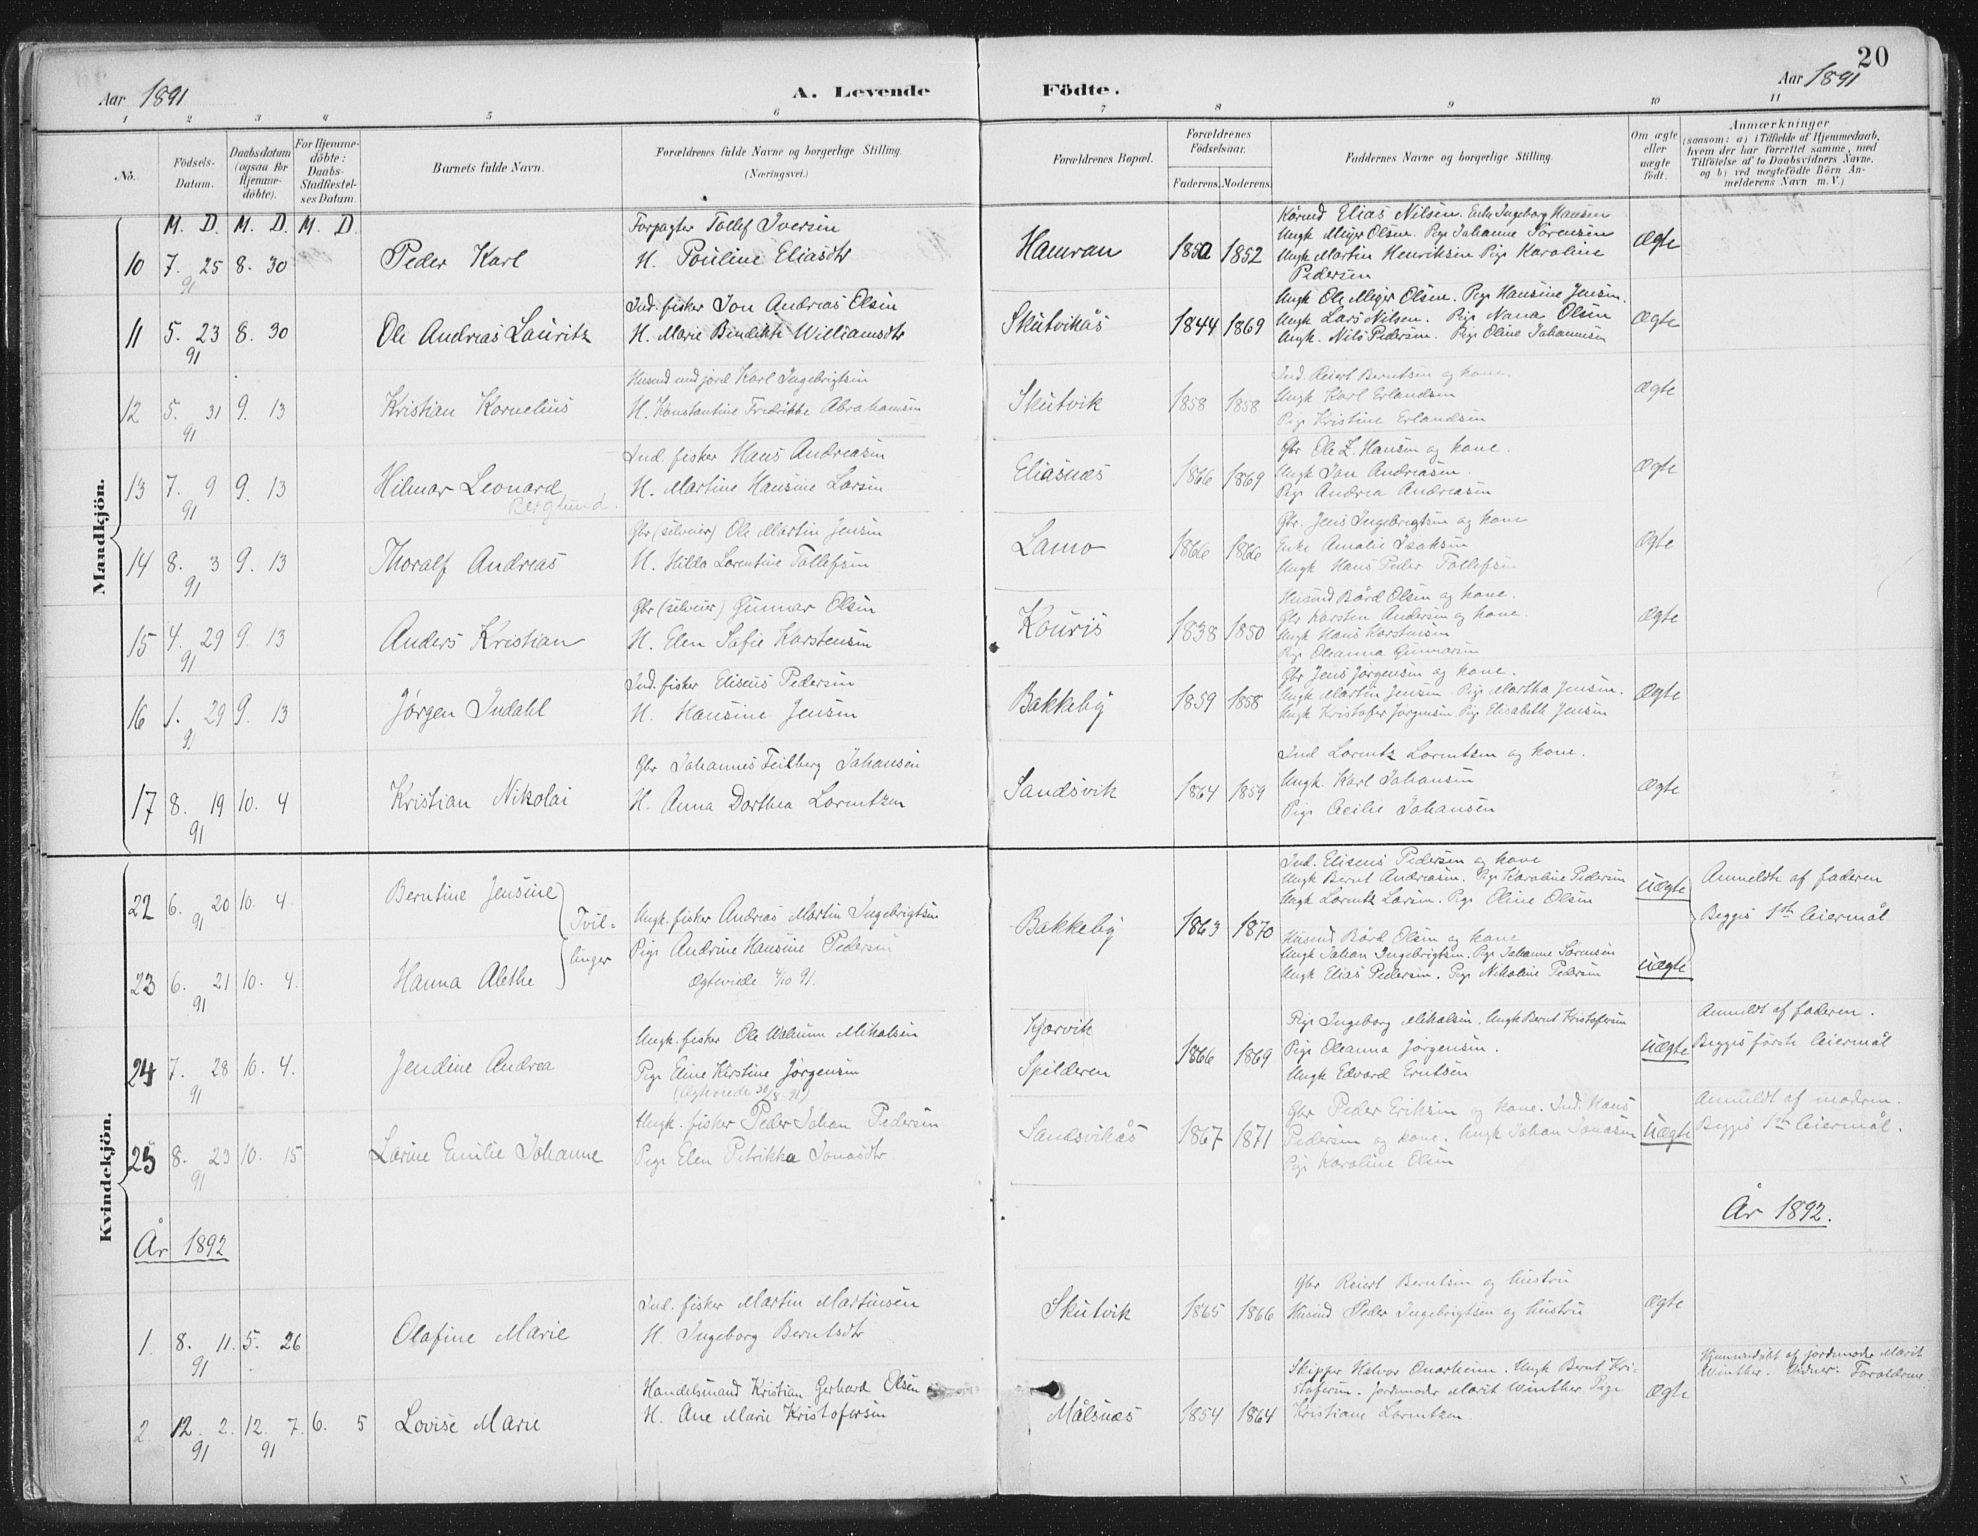 20
Aar 1891
A. Levende
Födte.
Aar 1891
1 2 3 4 5 6 7 8 9 10 11
No.
Födsels-Datum.
Daabsdatum (ogsaa for Hjemme-döbte).
For Hjemme-döbte: Daabs-Stadfæstel-ses Datum.
Barnets fulde Navn.
Forældrenes fulde Navne og borgerlige Stilling.
(Næringsvei.)
Forældrenes Bopæl.
Forældrenes Födselsaar.
Faderens. Moderens.
Faddernes Navne og borgerlige Stilling.
Om ægte eller uægte födt.
Anmærkninger
(saasom: a) i Tilfælde af Hjemmedaab, hvem der har forrettet samme, med Tilföielse af to Daabsvidners Navne, og b) ved uægtefödte Börn Anmelderens Navn m. V.)
M. D. M. D. M. D.
Mandkjön.
10 7. 25 91 8. 30 Peder Karl
Forpagter Tollef Iversen
H. Pouline Eliasdtr
Hamran 1850 1852
Kårmd Elias Nilsen. Enke Ingeborg Hansen
Ungk Meyer Olsen. Pige Johanne Sörensen
Ungk Martin Henriksen Pige Karoline
Pedersen
Ægte
11 5. 23 91 8. 30 Ole Andreas Lauritz
Ind. fisker Jon Andreas Olsen
H. Marie Bendikte Williamsdtr
Skutvikås 1844 1869
Ungk Ole Meyer Olsen. Pige Hansine Jensen.
Ungk Lars Nilsen. Pige Nana Olsen
Ungk. Nils Pedersen. Pige Oline Johannesen
Ægte
12 5. 31 91 9. 13 Kristian Kornelius
Husmd med jord Karl Ingebrigtsen
H. Konstantine Fredrikke Abrahamsen
Skutvik 1858 1858
Ind. Reiert Berntsen og kone.
Ungk Karl Erlandsen
Pige Kristine Erlandsen
Ægte
13 7. 9 91 9. 13 Hilmar Leonard
Berglund.
Ind. fisker Hans Andreasen
H. Martine Hansine Larsen
Eliasnæs 1866 1869
Gbr Ole L. Hansen og kone.
Ungk Jon Andreasen.
Pige Andrea Andreasen
Ægte
14 8. 3 91 9. 13 Thoralf Andreas
Gbr (selveier) Ole Martin Jensen
H. Hilda Lorentine Tollefsen
Lamo 1866 1866
Gbr. Jens Ingebrigtsen og kone
Enke Amalie Isaksen
Ungk Hans Peder Tollefsen
Ægte
15 4. 29 91 9. 13 Anders Kristian
Gbr (selveier) Gunnar Olsen
H. Elen Sofie Karstensen
Kouris 1838 1850
Husmd Bård Olsen og kone.
Gbr Karsten Andersen og kone.
Ungk Hans Karstensen
Pige Oleanna Gunnarsen
Ægte
16 1. 29 91 9. 13 Jørgen Indahl
Ind. fisker Eliseus Pedersen
H. Hansine Jensen
Bakkeby 1859 1858
Gbr Jens Jørgensen og kone.
Ungk Martin Jensen Pige Martha Jensen.
Ungk Kristofer Jørgensen Pige Elisabeth Jensen
Ægte
17 8. 19 91 10. 4 Kristian Nikolai
Gbr Johannes Feilberg Johansen
H. Anna Dorthea Lorentzen
Sandsvik 1864 1859
Ind Lorentz Lorentsen og kone.
Ungk. Karl Johansen
Pige Cecilie Johansen
Ægte
Kvindekjön.
22 6. 20 91 10. 4. Berntine Jensine
Tvil-linger
Ungk. fisker Andreas Martin Ingebrigtsen
Pige Andrine Hansine Pedersen
Ægteviede 4/10 91.
Bakkeby 1863 1870
Ind. Eliseus Pedersen og kone
Ungk Bernt Andreasen. Pige Karoline Pedersen
Ungk Lorentz Larsen. Pige Oline Olsen
Uægte
Anmeldt af faderen
Begges 1ste leiermål
23 6. 21 91 10. 4. Hanna Alethe
Husmd Bård Olsen og kone
Ungk Johan Ingebrigtsen. Pige Johanne Sörensen
Ungk Elias Pedersen. Pige Nikoline Pedersen
Uægte
24 7. 28 91 10. 4. Jendine Andrea
Ungk. fisker Ole Mikalsen
Pige Eline Kirstine Jørgensen
(Ægteviede 30/8 91)
Kjorvik
Spilderen
1866 1869
Pige Ingeborg Mikalsen. Ungk Bernt Kristofersen
Pige Oleanna Jørgensen.
Ungk Edvard Erntsen
Uægte
Anmeldt af faderen.
Begges förste leiermål
25 8. 23 91 10. 15 Larine Emilie Johanne
Ungk. fisker Peder Johan Pedersen
Pige Elen Petrikka Jonasdtr
Sandsvikås 1867 1871
Gbr Peder Eriksen og kone. Ind. Hans
Pedersen og kone. Ungk Johan Jonasen
Pige Karoline Olsen
Uægte
Anmeldt af modern.
Begges 1ste leiermål.
År 1892
År 1892.
1. 8. 11. 91 5. 26 Olafine Marie
Ind. fisker Martin Martinsen
H. Ingeborg Berntsdtr
Skutvik 1865 1866
Gbr Reiert Berntsen og hustru
Husmd Peder Ingebrigtsen og hustru
Ægte
2 12. 2. 91 12. 7. 91 6. 5 Lovise Marie
Handelsmand Kristian Gerhard Olsen
H. Ane Marie Kristofersen
Målsnæs 1854 1864
Skipper Halvor Onarheim. Ungk Bernt Kri-
stofersen. Jordemoder Marit Winther Pige
Kristiane Lorentzen.
Ægte
Hjemmedöbt af jordemoder Marit
Winther. Vidner: Foreldrene